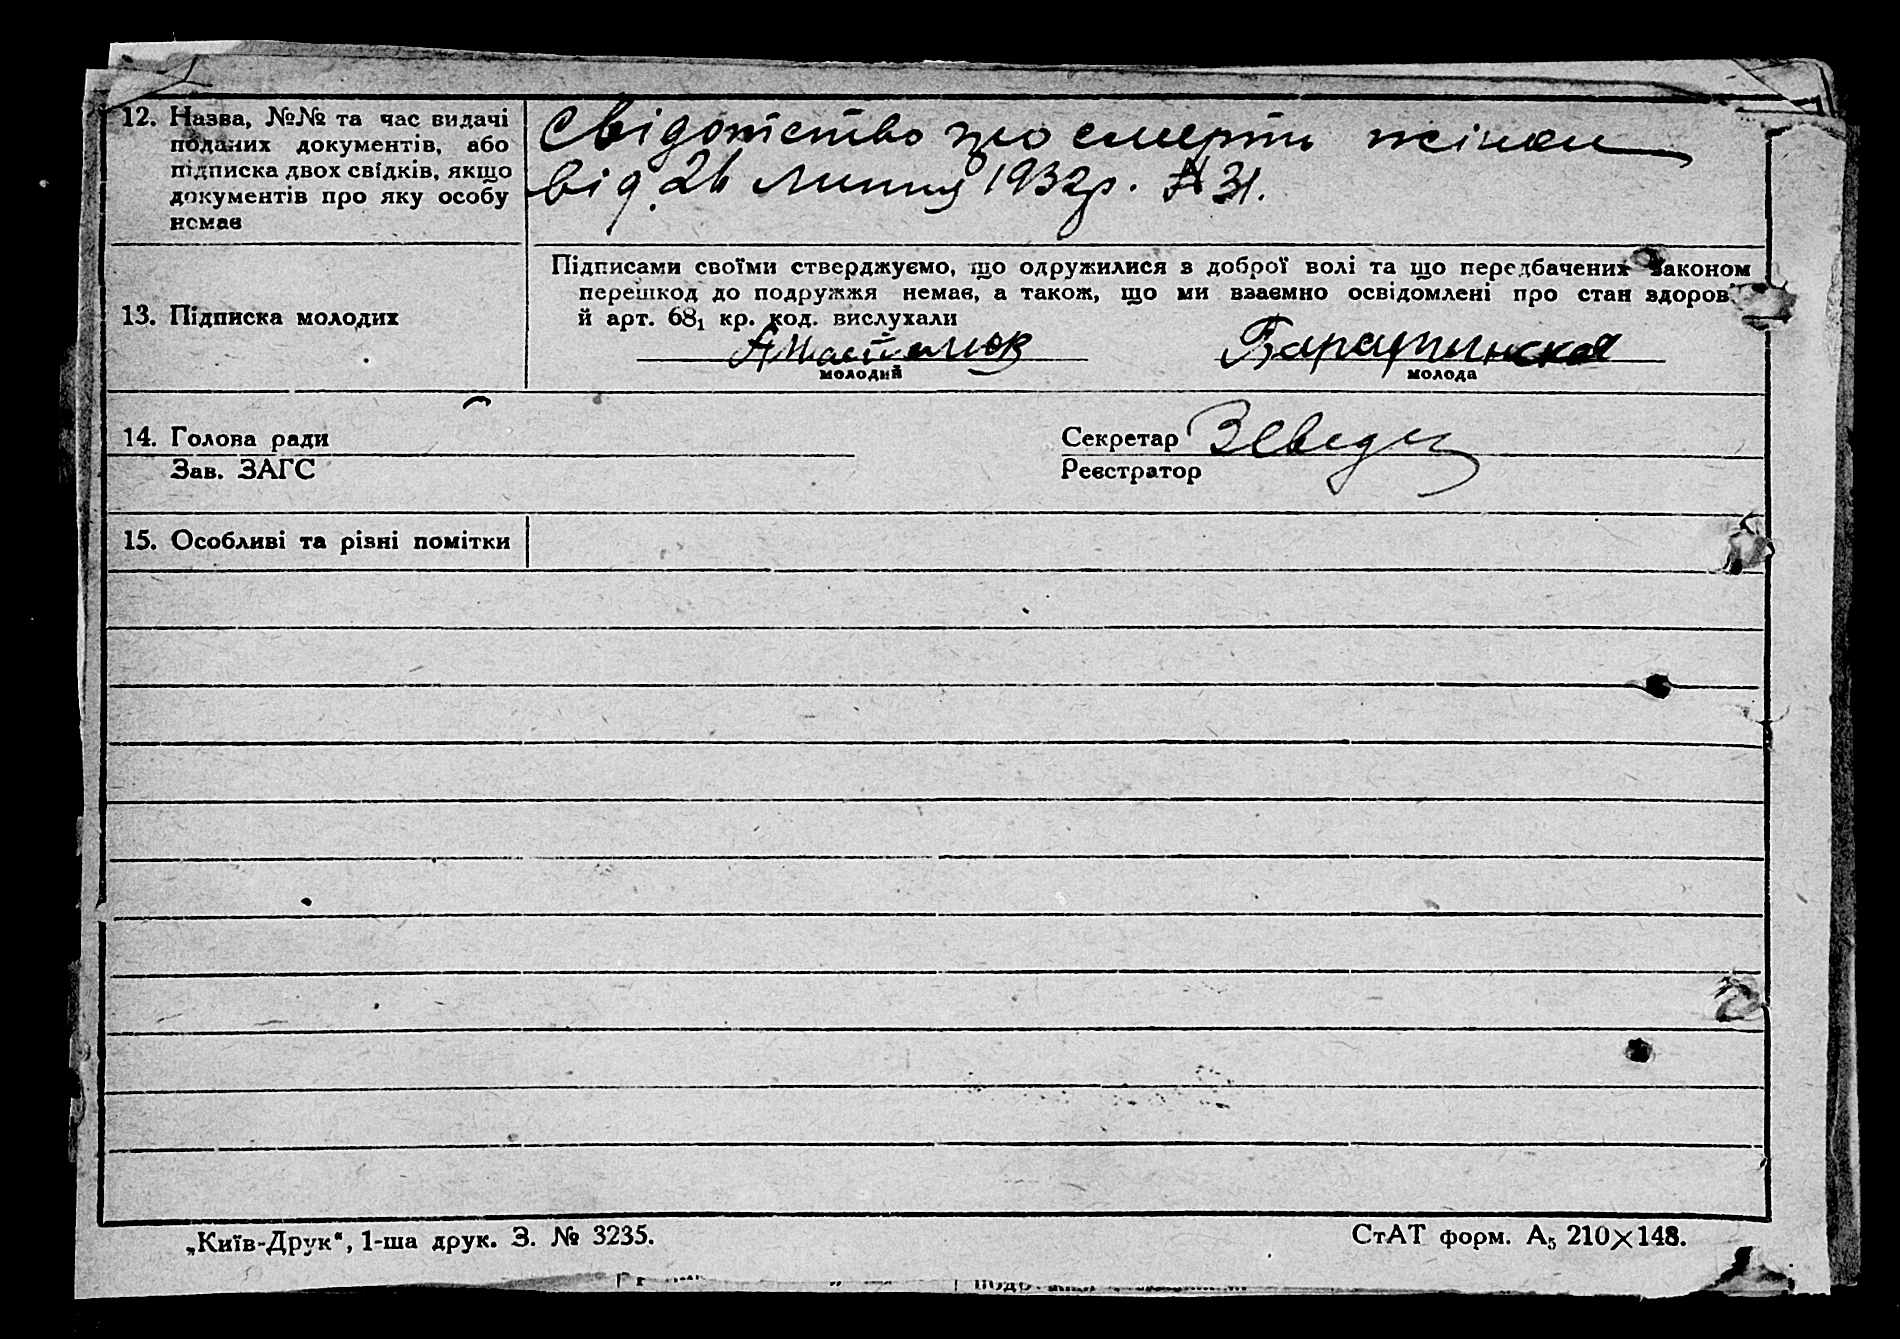 12. Назва, №№ та час видачі
поданих документів, або
підписка двох свідків, якщо
документів про яку особу
немає
Свідотство про смерть жінки
від 26 липня 1932р. № 31.
13. Підписка молодих
Підписами своїми стверджуємо, що одружилися з доброї волі та що передбачених законом
перешкод до подружжя немає, а також, що ми взаємно освідомлені про стан здоров'
й арт. 68₁ кр. код. вислухали
молодий
молода
14. Голова ради
Секретар
Зав. ЗАГС
Реєстратор
15. Особливі та різні помітки
„Київ-Друк“, 1-ша друк. З. № 3235.
СтАТ форм. А₅ 210×148.